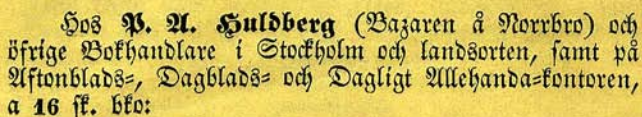 Hos P. A. Huldberg (Bazaren å Norrbro) och
öfrige Bokhandlare i Stockholm och landsorten, samt på
Aftonblads-, Dagblads- och Dagligt Allehanda-kontoren,
a 16 sk. bko: